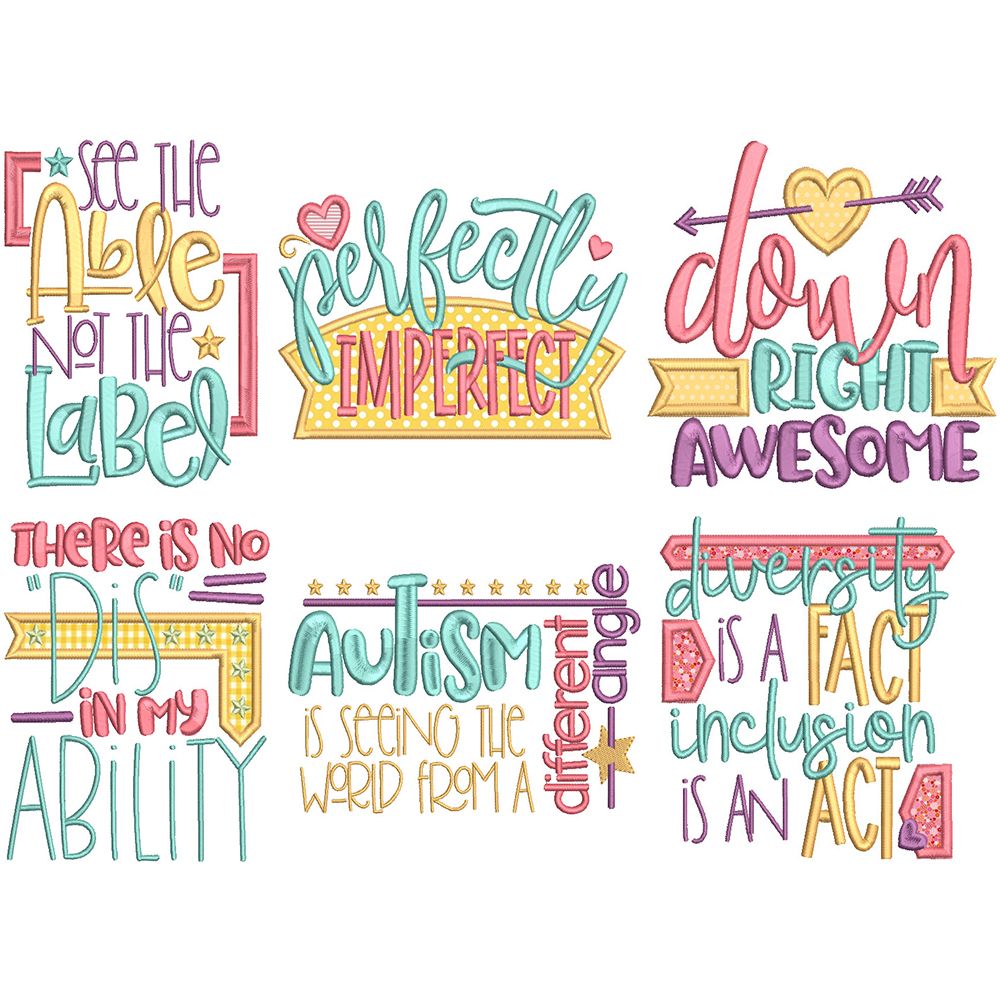 See the
Able
Not the
Label
perfectly
IMPERFECT
down
RIGHT
AWESOME
There is no
"Dis"
in my
ABILITY
AUTISM
is seeing the
world from a
different
angle
diversity
is a FACT
inclusion
is an ACT